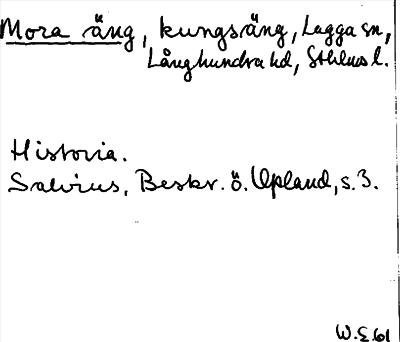 Mora äng, kungsäng, Lagga sn,
Långhundra hd, Sthlms l.
Historia.
Salvius, Beskr. ö. Upland, s. 3.
W.E. 61